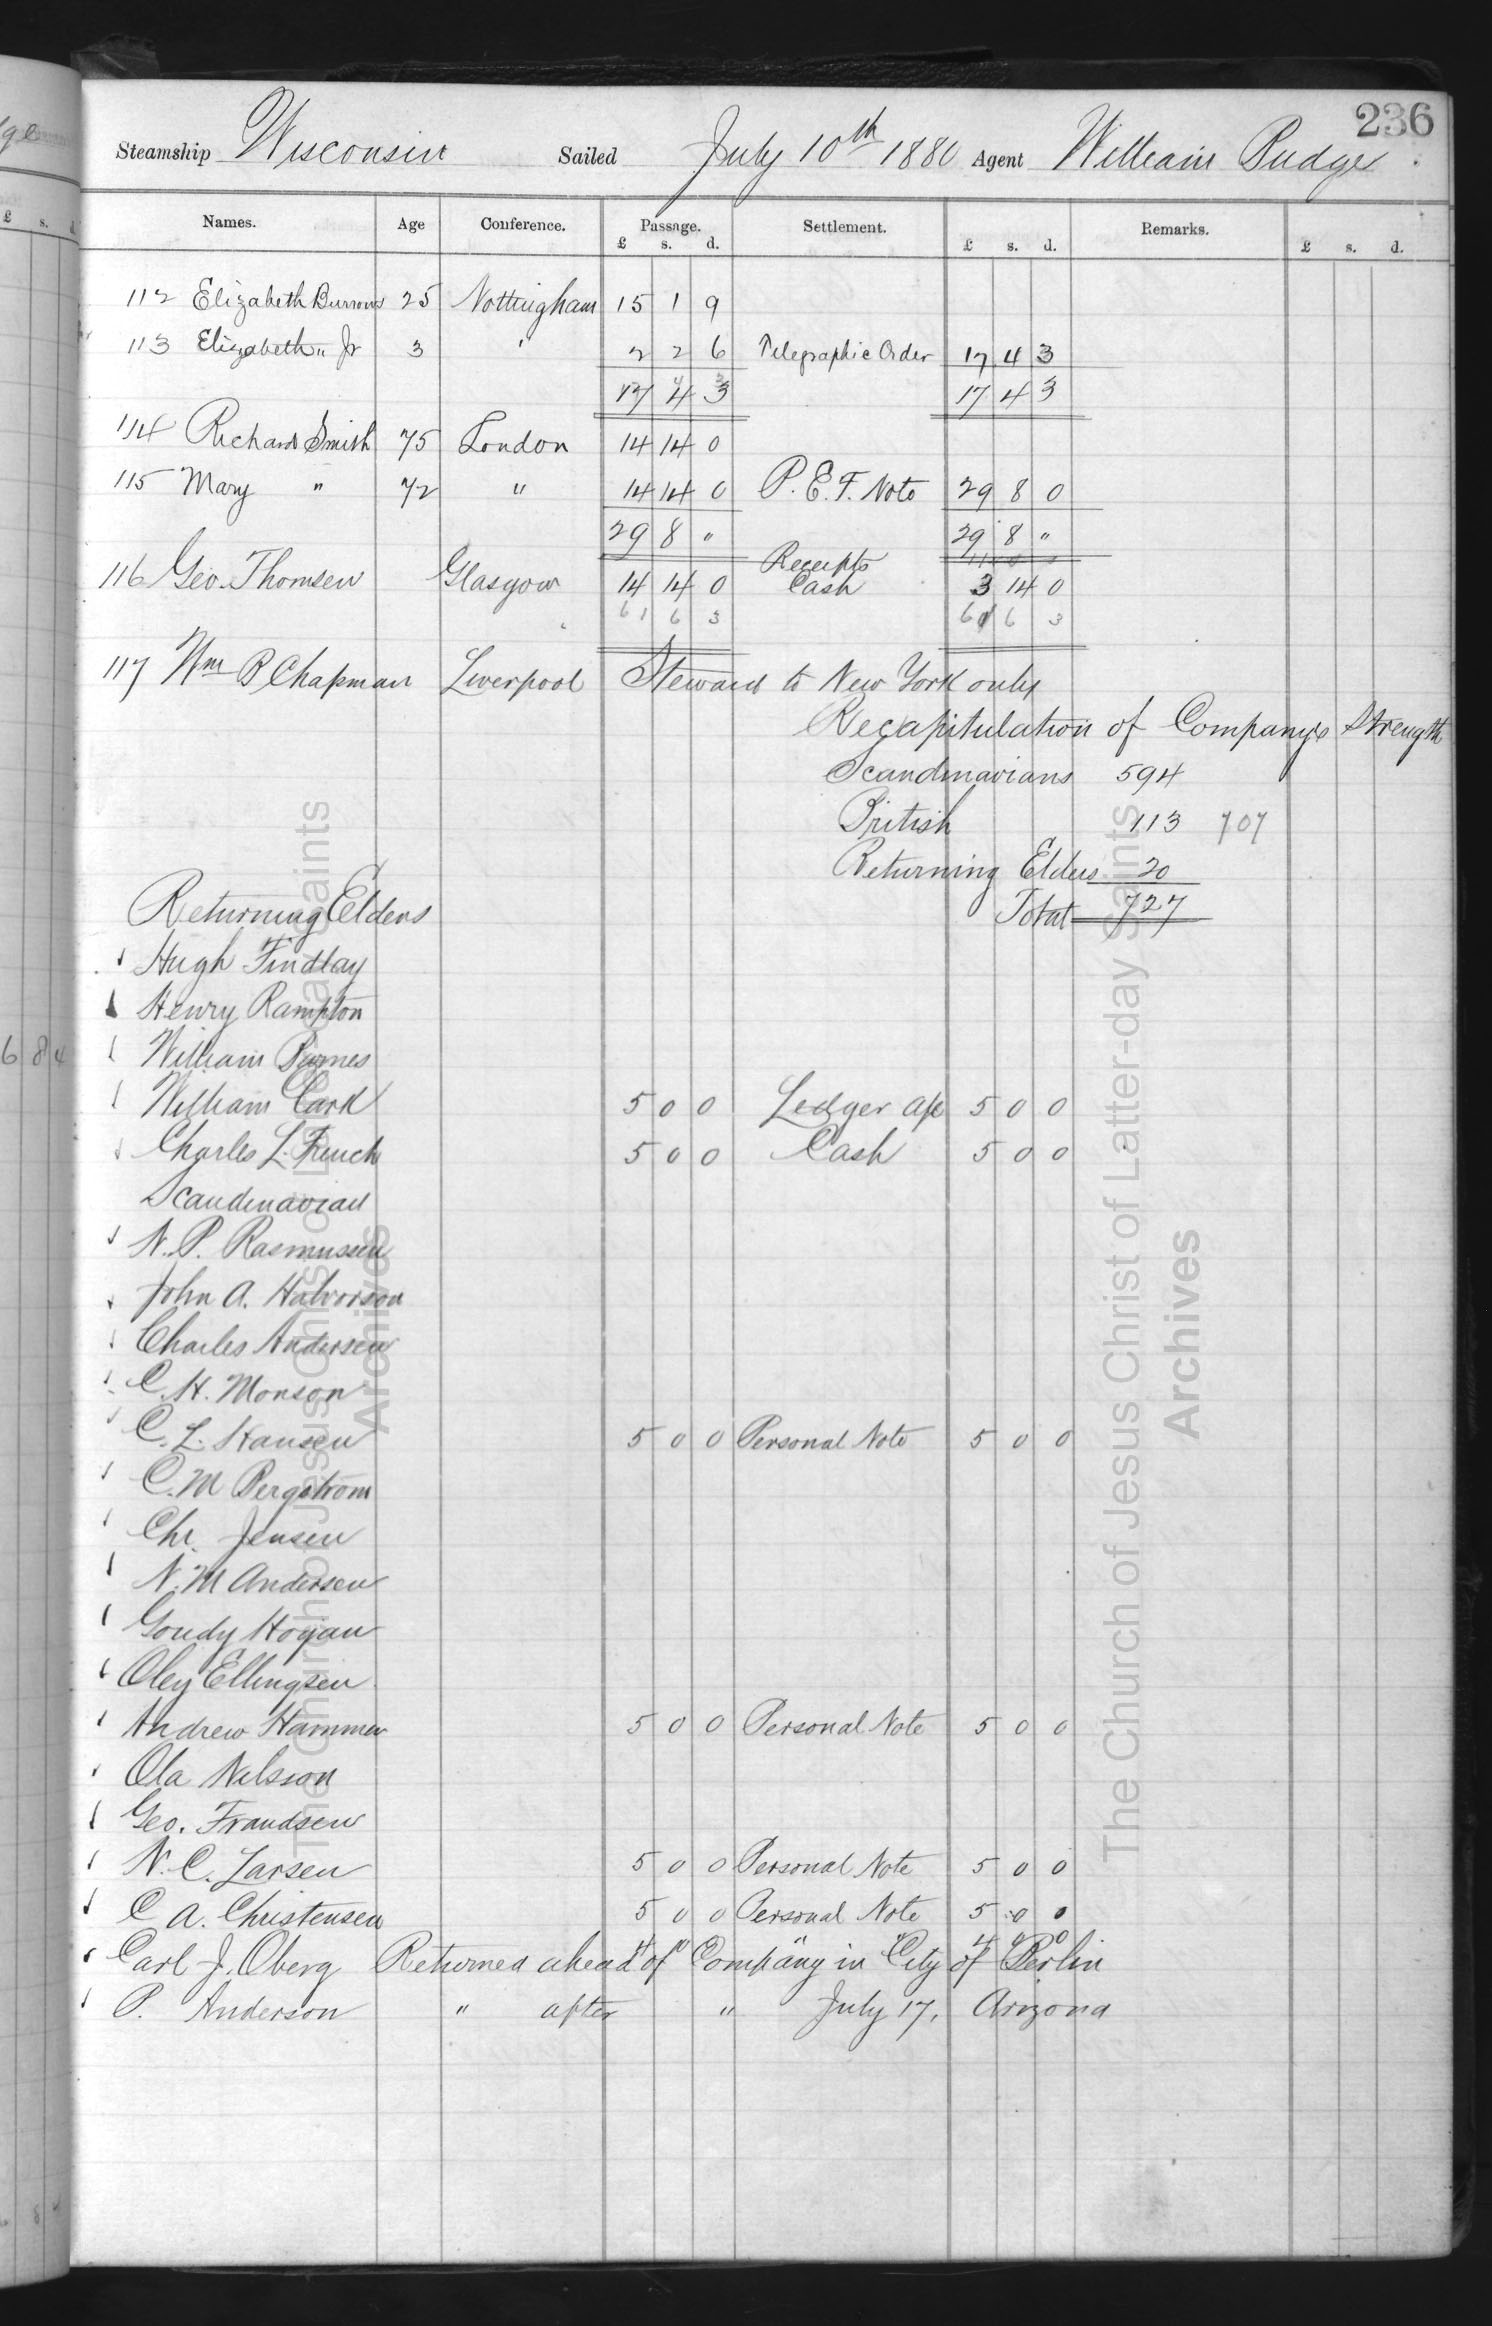 236
Steamship Wisconsin Sailed July 10th 1880 Agent William Budge
Names. Age Conference. Passage. Settlement. Remarks.
£ s. d. £ s. d. £ s. d.
112 Elizabeth Burrows 25 Nottingham 15 1 9
113 Elizabeth " Jr 3 " 2 2 6 Telegraphic Order 17 4 3
17 4 3 17 4 3
114 Richard Smith 75 London 14 14 0
115 Mary " 72 " 14 14 0 P. E. F. Note 29 8 0
29 8 " 29 8 "
Receipts 11 0 0
116 Geo. Thomsen Glasgow 14 14 0 Cash 3 14 0
61 6 3 61 6 3
117 Wm B Chapman Liverpool Steward to New York only
Recapitulation of Company's Strength
Scandinavians 594
British 113 707
Returning Elders 20
Total 727
Returning Elders
Hugh Findlay
Henry Rampton
William Burnes
William Card 5 0 0 Ledger a/c 5 0 0
Charles L. French 5 0 0 Cash 5 0 0
Scandinavian
N. P. Rasmussen
John A. Halvorson
Charles Andersen
C. H. Monson
C. L. Hansen 5 0 0 Personal Note 5 0 0
C. M Bergstrom
Chr. Jensen
N. M Andersen
Goudy Hogan
Oley Ellingsen
Andrew Hammer 5 0 0 Personal Note 5 0 0
Ola Nilsson
Geo. Frandsen
N. C. Larsen 5 0 0 Personal Note 5 0 0
C A. Christensen 5 0 0 Personal Note 5 0 0
Carl J. Oberg Returned ahead of Company in City of Berlin
P. Anderson " after " July 17, Arizona
6 8 4
The Church of Jesus Christ of Latter-day Saints
Archives
The Church of Jesus Christ of Latter-day Saints
Archives